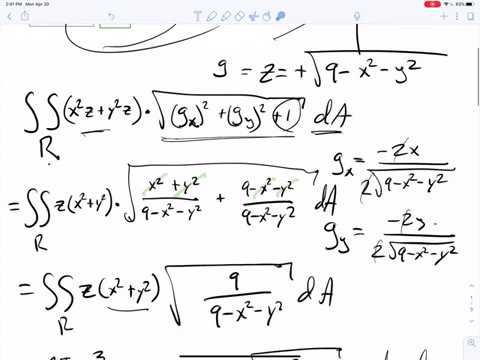 2:41 PM Mon Apr 20
g = z = +√(9 - x² - y²)
∫∫_R (x²z + y²z) · √((g_x)² + (g_y)² + 1) dA
g_x = -2x / 2√(9 - x² - y²)
= ∫∫_R z(x² + y²) · √((x² + y²)/(9 - x² - y²) + (9 - x² - y²)/(9 - x² - y²)) dA
g_y = -2y / 2√(9 - x² - y²)
= ∫∫_R z(x² + y²) √(9/(9 - x² - y²)) dA